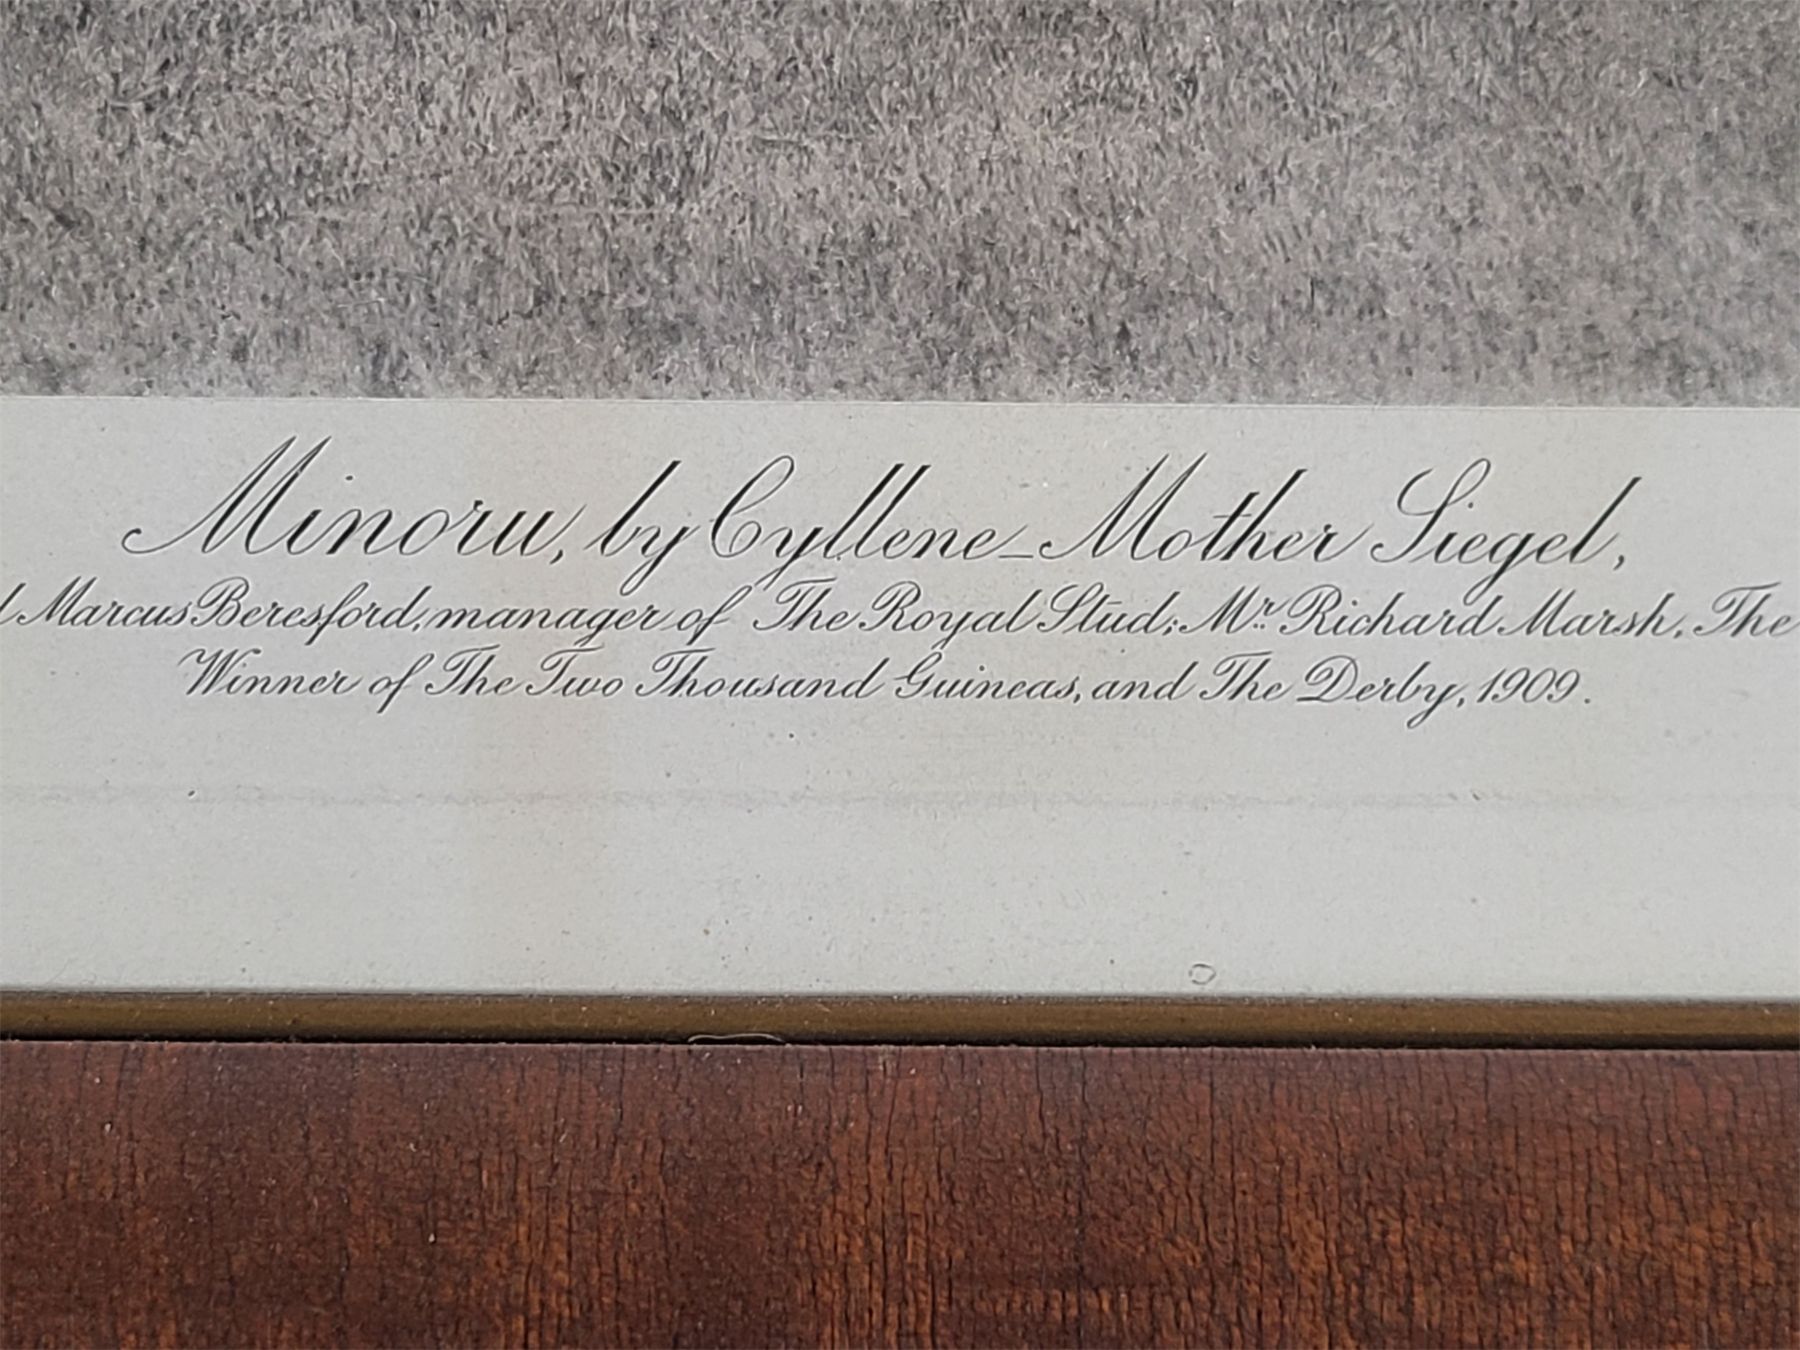 Minoru, by Cyllene _ Mother Siegel,
Marcus Beresford, manager of The Royal Stud; Mr. Richard Marsh, The
Winner of The Two Thousand Guineas, and The Derby, 1909.